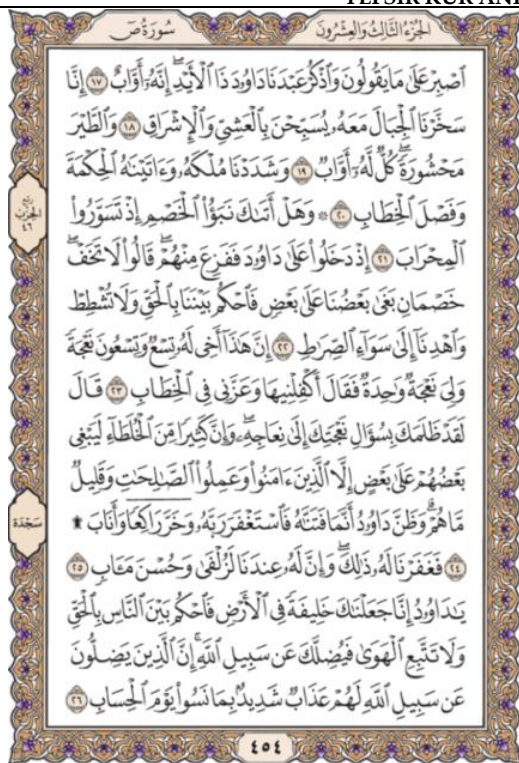 TEFSİR KUR'ANI
سُورَةُ صٓ
الجُزْءُ الثَّالِثُ وَالعِشْرُونَ
ٱصْبِرْ عَلَىٰ مَا يَقُولُونَ وَٱذْكُرْ عَبْدَنَا دَاوُۥدَ ذَا ٱلْأَيْدِۖ إِنَّهُۥٓ أَوَّابٌ ١٧ إِنَّا
سَخَّرْنَا ٱلْجِبَالَ مَعَهُۥ يُسَبِّحْنَ بِٱلْعَشِيِّ وَٱلْإِشْرَاقِ ١٨ وَٱلطَّيْرَ
مَحْشُورَةًۖ كُلٌّ لَّهُۥٓ أَوَّابٌ ١٩ وَشَدَدْنَا مُلْكَهُۥ وَءَاتَيْنَٰهُ ٱلْحِكْمَةَ
وَفَصْلَ ٱلْخِطَابِ ٢٠ ۞ وَهَلْ أَتَىٰكَ نَبَؤُاْ ٱلْخَصْمِ إِذْ تَسَوَّرُواْ
ٱلْمِحْرَابَ ٢١ إِذْ دَخَلُواْ عَلَىٰ دَاوُۥدَ فَفَزِعَ مِنْهُمْۖ قَالُواْ لَا تَخَفْۖ
خَصْمَانِ بَغَىٰ بَعْضُنَا عَلَىٰ بَعْضٍ فَٱحْكُم بَيْنَنَا بِٱلْحَقِّ وَلَا تُشْطِطْ
وَٱهْدِنَآ إِلَىٰ سَوَآءِ ٱلصِّرَٰطِ ٢٢ إِنَّ هَٰذَآ أَخِى لَهُۥ تِسْعٌ وَتِسْعُونَ نَعْجَةً
وَلِىَ نَعْجَةٌ وَٰحِدَةٌ فَقَالَ أَكْفِلْنِيهَا وَعَزَّنِى فِى ٱلْخِطَابِ ٢٣ قَالَ
لَقَدْ ظَلَمَكَ بِسُؤَالِ نَعْجَتِكَ إِلَىٰ نِعَاجِهِۦۖ وَإِنَّ كَثِيرًا مِّنَ ٱلْخُلَطَآءِ لَيَبْغِى
بَعْضُهُمْ عَلَىٰ بَعْضٍ إِلَّا ٱلَّذِينَ ءَامَنُواْ وَعَمِلُواْ ٱلصَّٰلِحَٰتِ وَقَلِيلٌ
مَّا هُمْۗ وَظَنَّ دَاوُۥدُ أَنَّمَا فَتَنَّٰهُ فَٱسْتَغْفَرَ رَبَّهُۥ وَخَرَّ رَاكِعًا وَأَنَابَ ۩
٢٤ فَغَفَرْنَا لَهُۥ ذَٰلِكَۖ وَإِنَّ لَهُۥ عِندَنَا لَزُلْفَىٰ وَحُسْنَ مَـَٔابٍ ٢٥
يَٰدَاوُۥدُ إِنَّا جَعَلْنَٰكَ خَلِيفَةً فِى ٱلْأَرْضِ فَٱحْكُم بَيْنَ ٱلنَّاسِ بِٱلْحَقِّ
وَلَا تَتَّبِعِ ٱلْهَوَىٰ فَيُضِلَّكَ عَن سَبِيلِ ٱللَّهِۚ إِنَّ ٱلَّذِينَ يَضِلُّونَ
عَن سَبِيلِ ٱللَّهِ لَهُمْ عَذَابٌ شَدِيدٌۢ بِمَا نَسُواْ يَوْمَ ٱلْحِسَابِ ٢٦
ربع
الحزب
٤٦
سجدة
٤٥٤